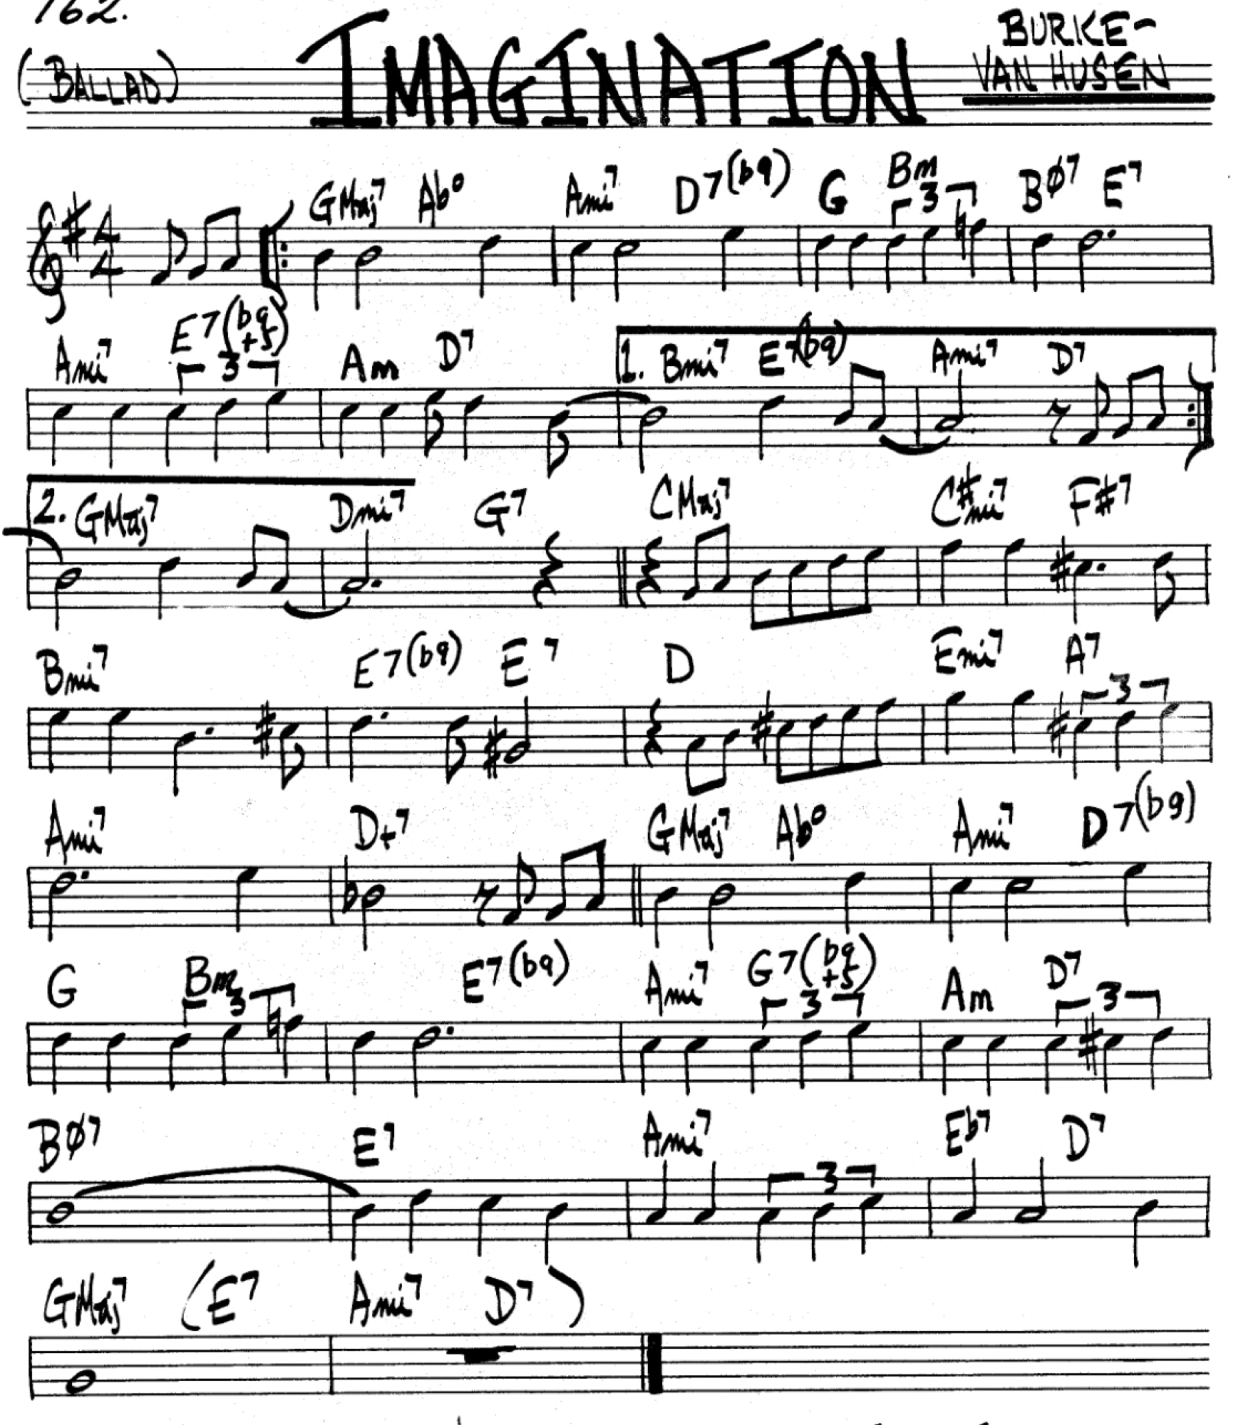 162.
(BALLAD) IMAGINATION BURKE-
VAN HUSEN
4
4
GMaj7 Ab° Ami7 D7(b9) G Bm BØ7 E7
3
Ami7 E7(b9 +5) Am D7 1. Bmi7 E7(b9) Ami7 D7
3
2. GMaj7 Dmi7 G7 CMaj7 C#mi7 F#7
Bmi7 E7(b9) E7 D Emi7 A7
3
Ami7 D+7 GMaj7 Ab° Ami7 D7(b9)
G Bm E7(b9) Ami7 G7(b9 +5) Am D7
3 3 3
BØ7 E7 Ami7 Eb7 D7
3
GMaj7 (E7 Ami7 D7)